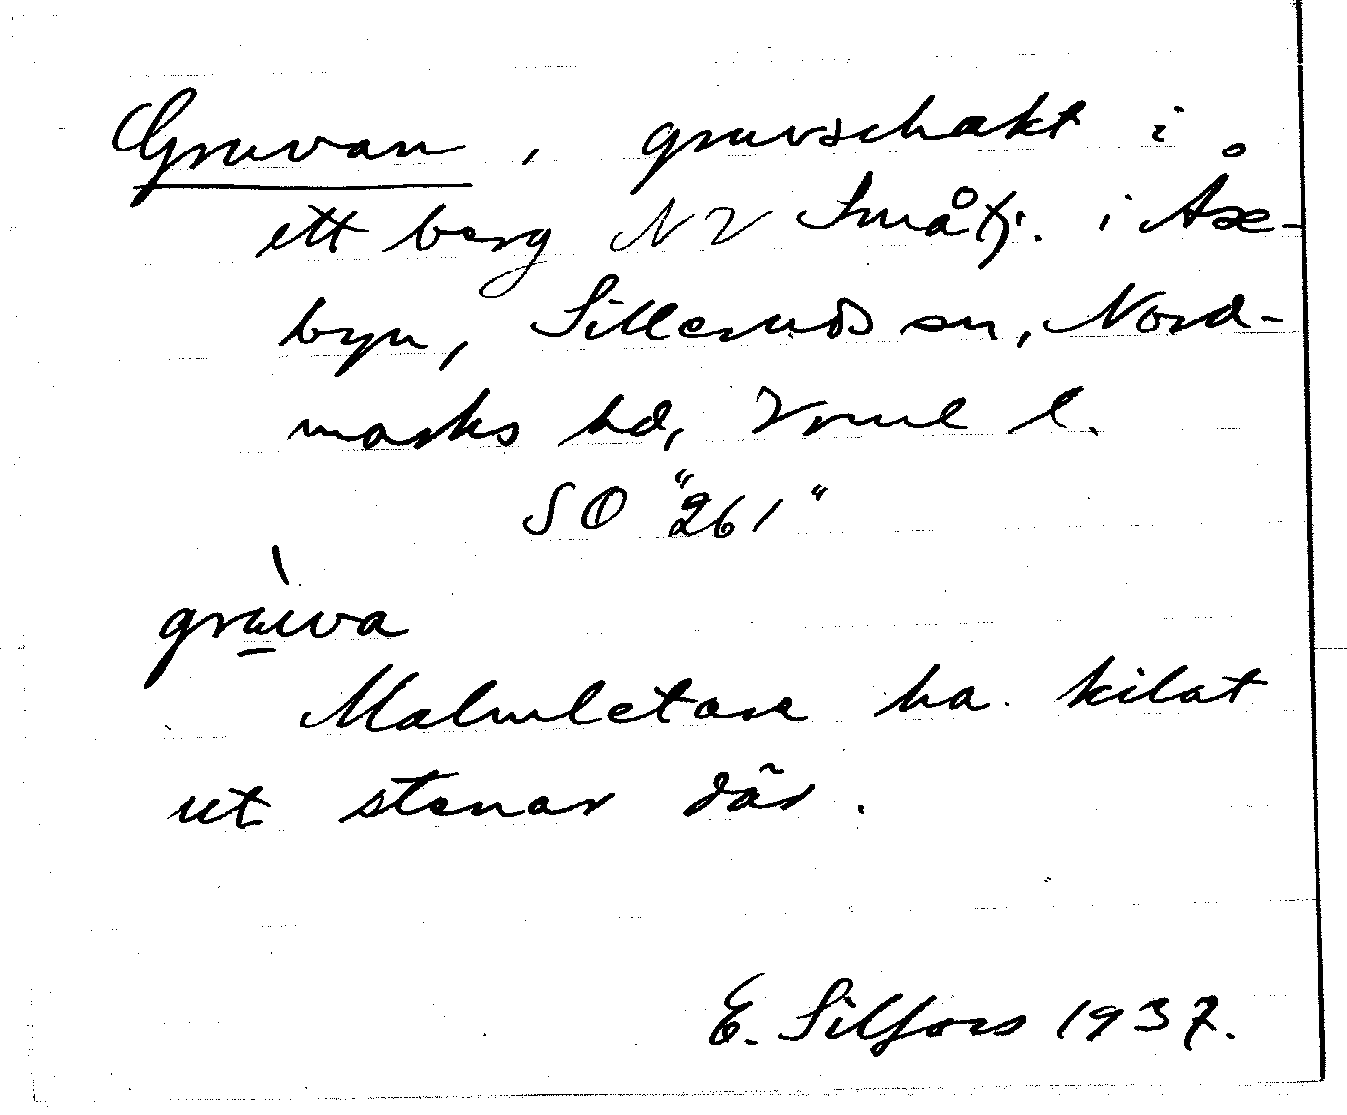 Gruvan, gruvschakt i
ett berg NV Småtj. i Åse-
byn, Silleruds sn, Nord-
marks hd, Vrml l.
SO "261"
grùva
Malmletare ha kilat
ut stenar där.
E. Silfors 1937.